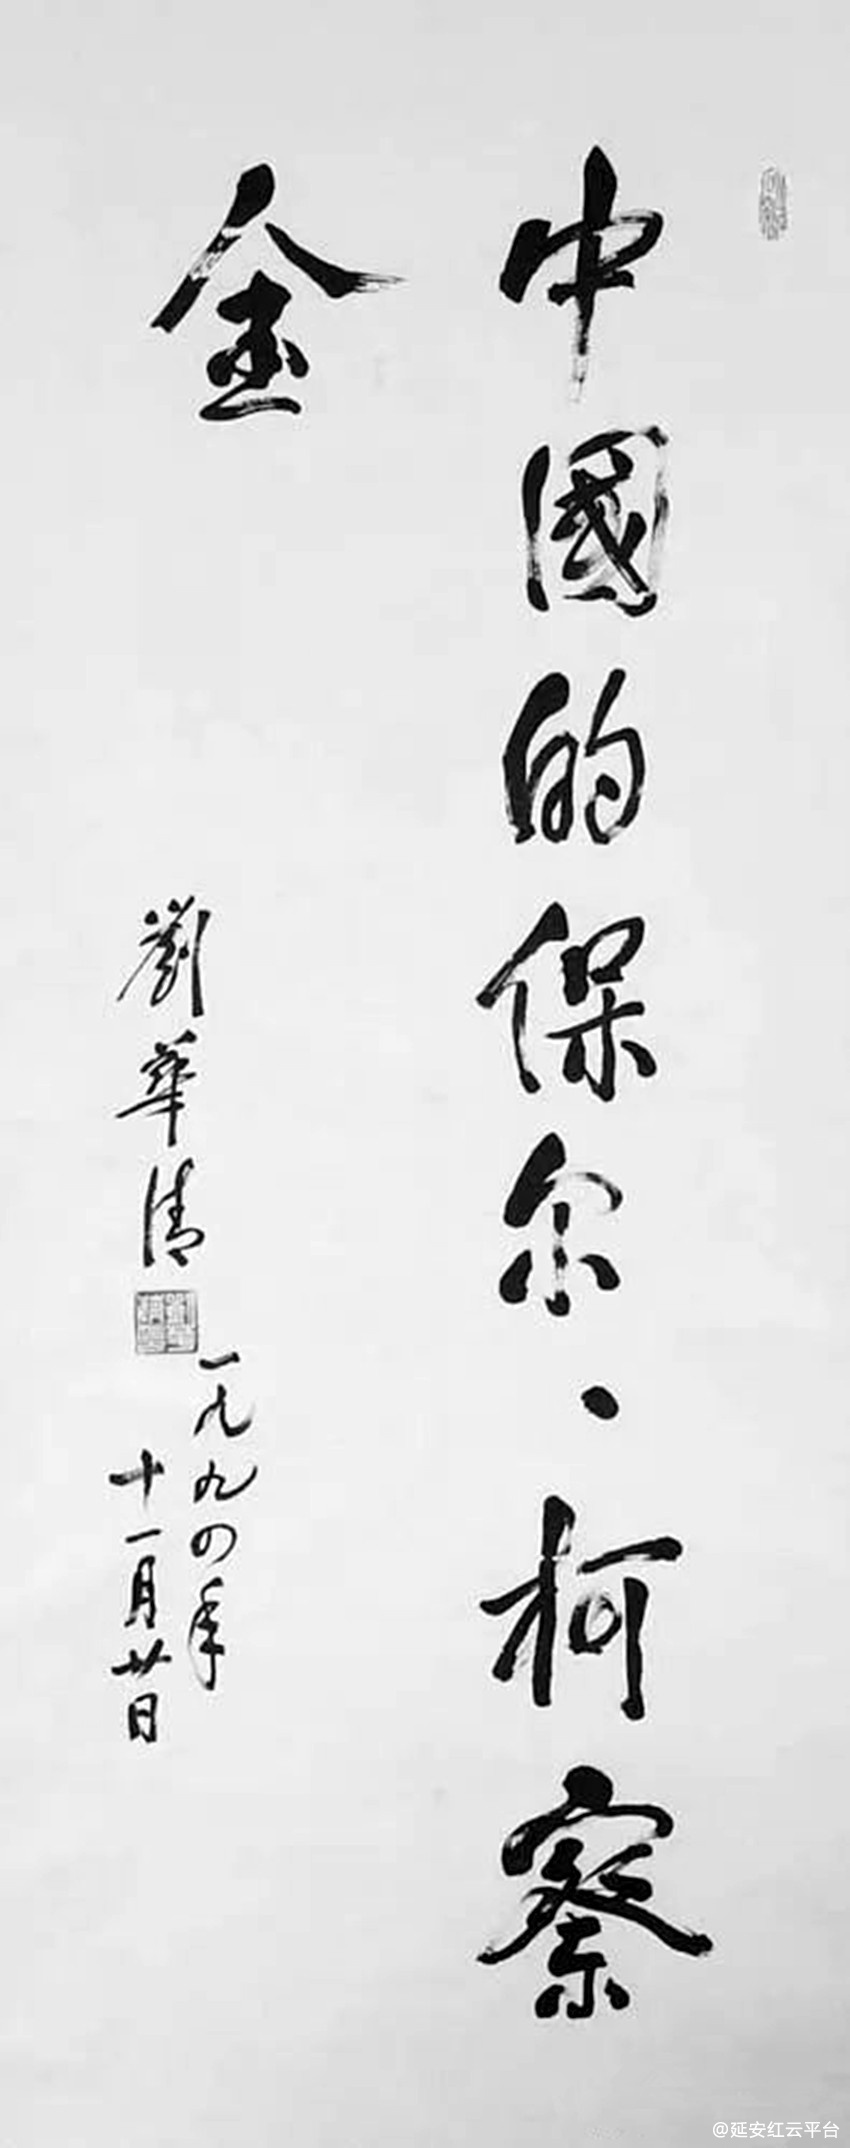 中國的保尔·柯察
金
劉華清
一九九四年
十一月廿日
@延安红云平台